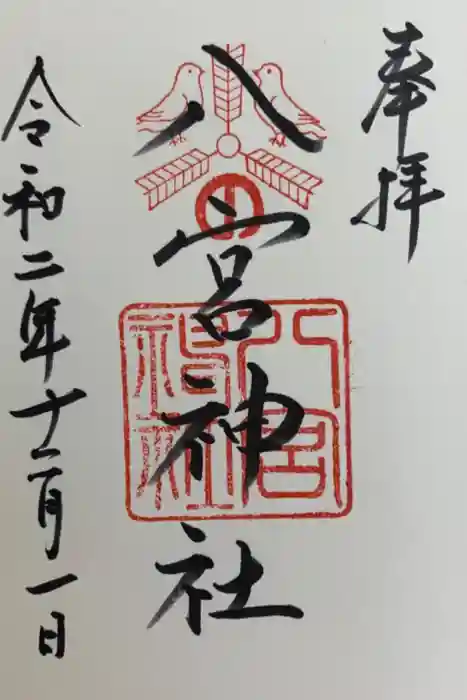 奉拝
八宮神社
八宮
神社
令和二年十二月一日